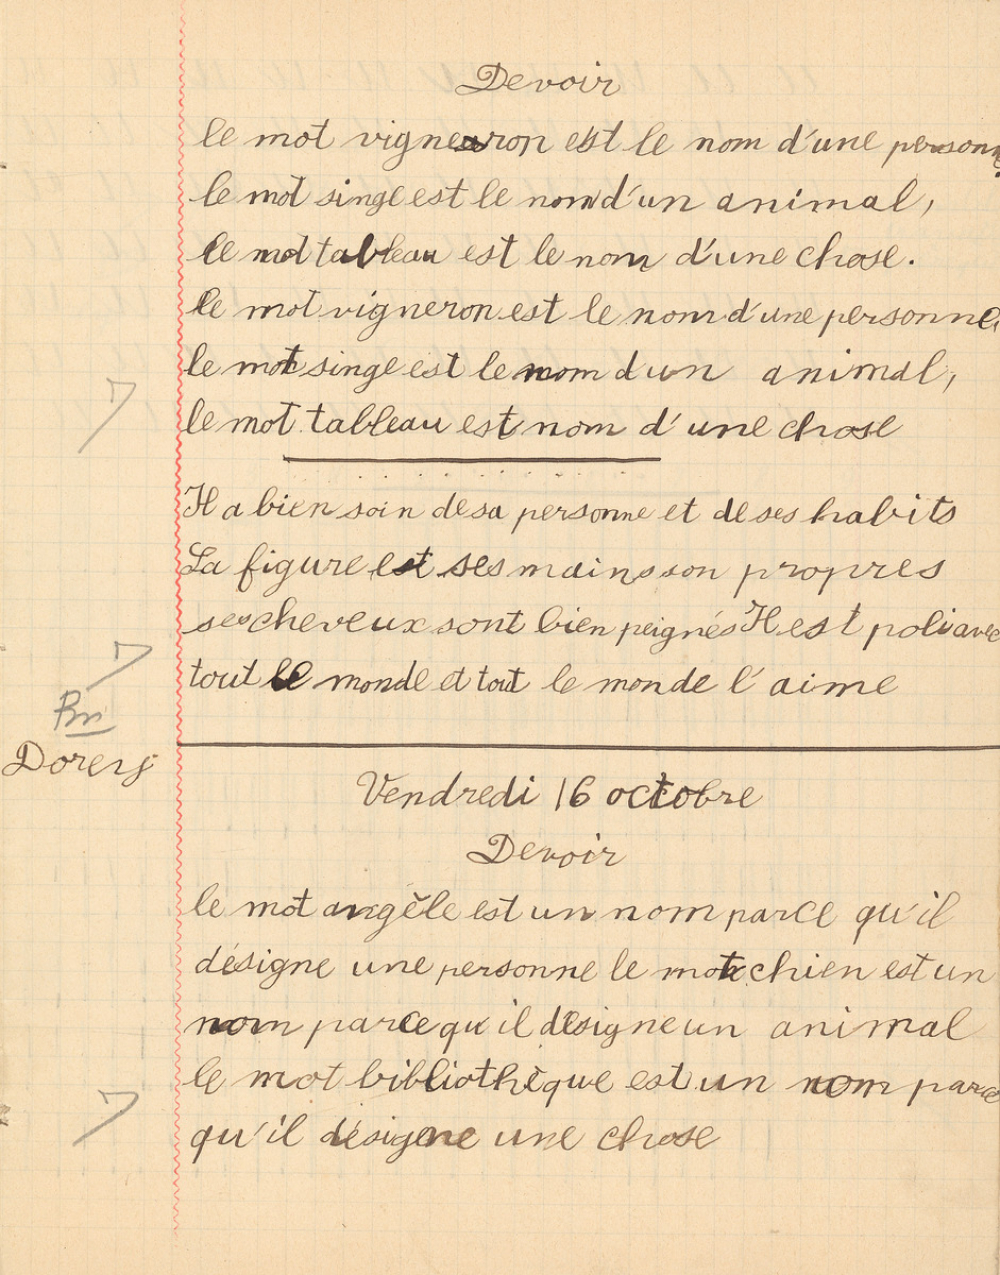 Devoir
le mot vigneron est le nom d'une personne
le mot singe est le nom d'un animal,
le mot tableau est le nom d'une chose.
le mot vigneron est le nom d'une personne,
le mot singe est le nom d un animal,
le mot tableau est nom d'une chose
7
Il a bien soin de sa personne et de ses habits
La figure est ses mains son propres
ses cheveux sont bien peignés Il est poli avec
tout le monde et tout le monde l'aime
7
Bn
Vendredi 16 octobre
Devoir
le mot angèle est un nom parce qu'il
désigne une personne le mot chien est un
nom parce qu'il désigne un animal
le mot bibliothèque est un nom parce
qu'il désigne une chose
7